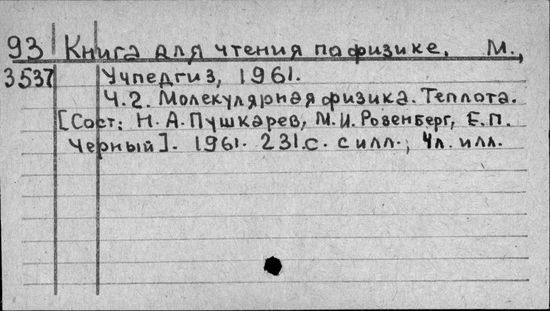 93 Книга для чтения по физике. М.,
3537 Учпедгиз, 1961.
Ч.2. Молекулярная физика. Теплота.
[Сост: Н.А.Пушкарев, М.И.Розенберг, Е.П.
Черный]. 1961. 231.с. с илл.; 4л. илл.